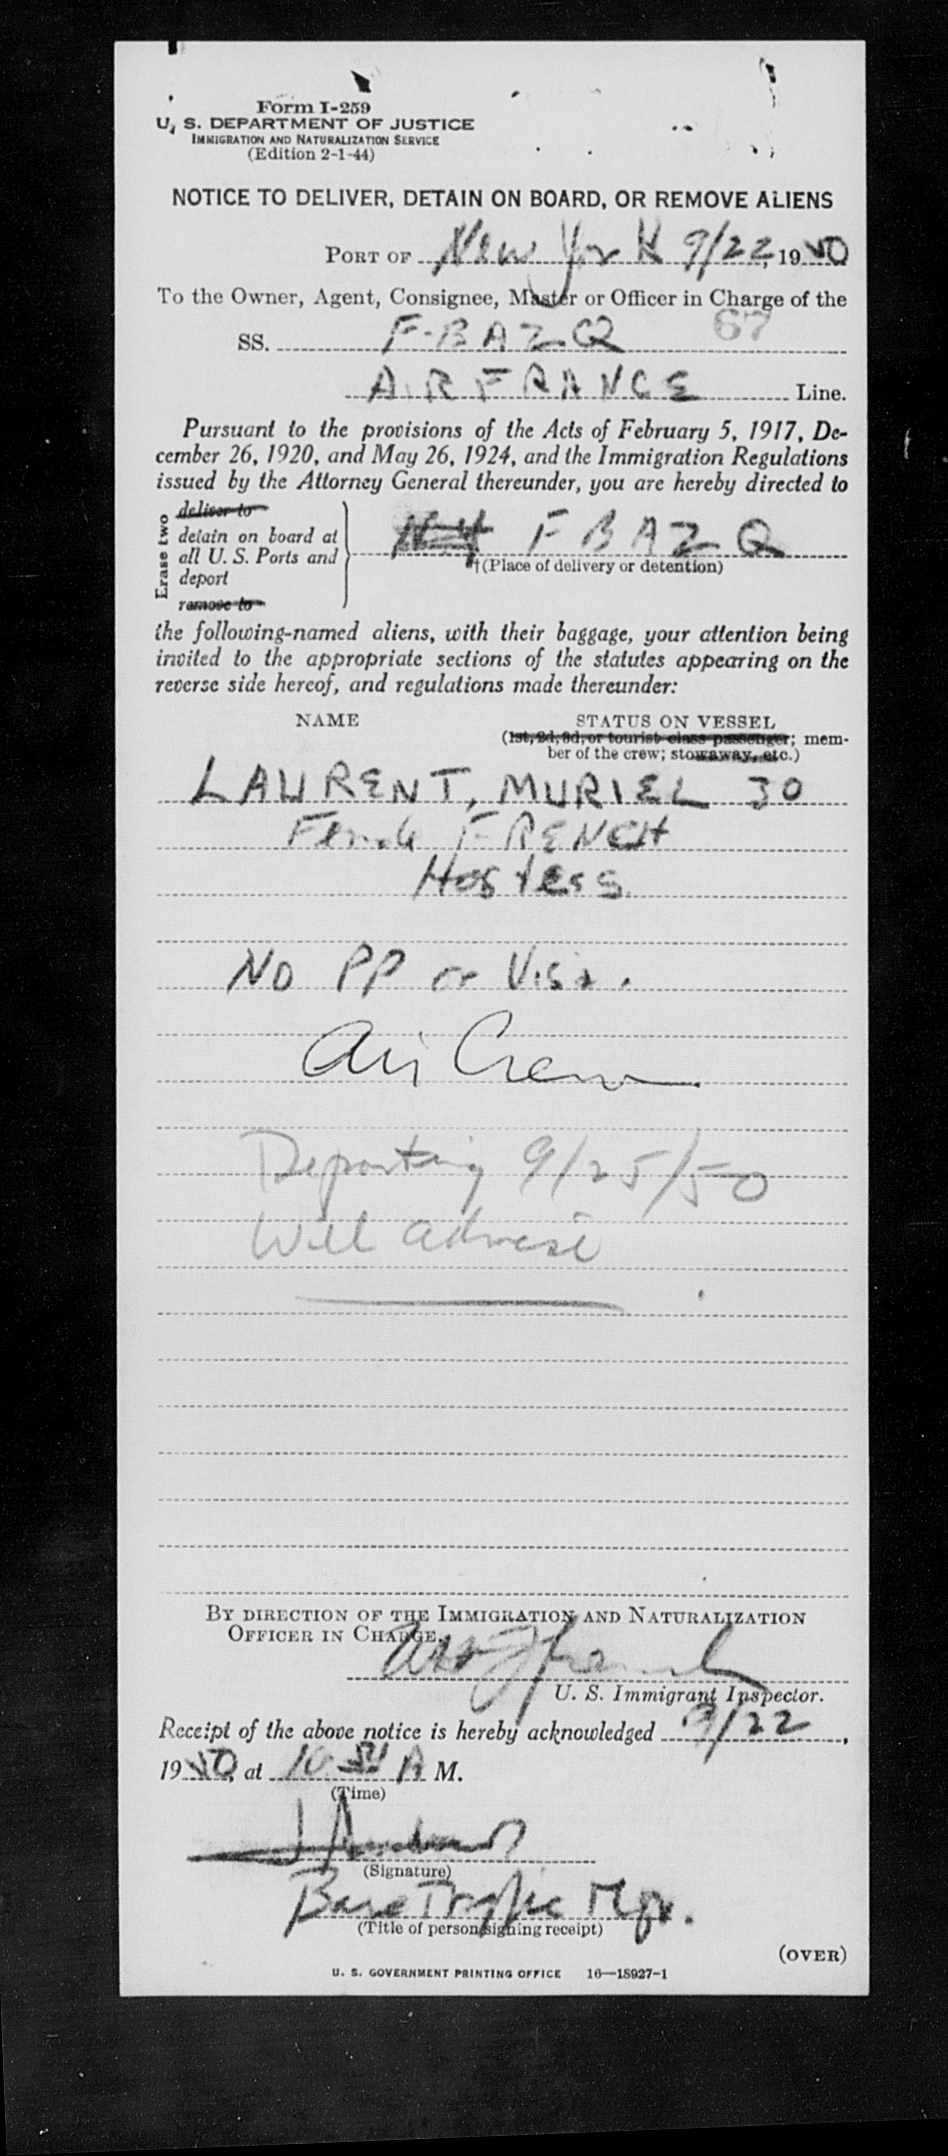 Form I-259
U. S. DEPARTMENT OF JUSTICE
IMMIGRATION AND NATURALIZATION SERVICE
(Edition 2-1-44)
NOTICE TO DELIVER, DETAIN ON BOARD, OR REMOVE ALIENS
PORT OF New York 9/22, 1950
To the Owner, Agent, Consignee, Master or Officer in Charge of the
67
SS. F-BAZQ
AIR FRANCE Line.
Pursuant to the provisions of the Acts of February 5, 1917, De-
cember 26, 1920, and May 26, 1924, and the Immigration Regulations
issued by the Attorney General thereunder, you are hereby directed to
Erase two
deliver to
detain on board at
all U. S. Ports and
deport
remove to
F BAZQ
†(Place of delivery or detention)
the following-named aliens, with their baggage, your attention being
invited to the appropriate sections of the statutes appearing on the
reverse side hereof, and regulations made thereunder:
NAME STATUS ON VESSEL
(1st, 2d, 3d, or tourist class passenger; mem-
ber of the crew; stowaway, etc.)
LAURENT, MURIEL 30
Female FRENCH
Hostess
No PP or Visa.
Air Crew
Departing 9/25/50
Will advise
BY DIRECTION OF THE IMMIGRATION AND NATURALIZATION
OFFICER IN CHARGE.
U. S. Immigrant Inspector.
Receipt of the above notice is hereby acknowledged 9/22,
1950, at 10 A M.
(Time)
(Signature)
Base Traffic Mgr.
(Title of person signing receipt)
(OVER)
U. S. GOVERNMENT PRINTING OFFICE 16—18927-1